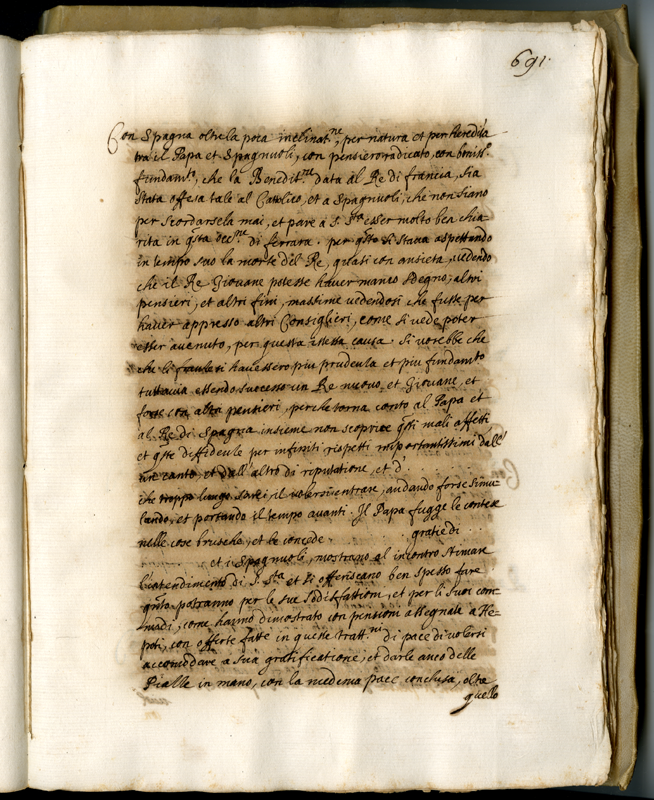 691.
Con Spagna oltre la poca inclinat.ne, per natura et per heredita
tra il Papa et Spagnuoli, con pensiero radicato, con boniss.o
fundam.to, che la Benedit.ne data al Re di francia, sia
stata offesa tale al Cattolico, et a Spagnuoli, che non siano
per scordarsela mai, et pare à S. S.ta esser molto ben chia
rita in q.sta occ.ne di ferrara. per q.sto si stava aspettando
in tempo suo la morte del Re, quasi con ansieta, vedendo
che il Re Giovane potesse haver manco sdegno, altri
pensieri, et altri fini, massime vedendosi che fusse per
haver appresso altri Consiglieri, come si vede poter
esser avenuto, per questa istessa causa. Si vorebbe che
che li francesi havessero piu prudentia et piu fundam.to
tuttavia essendo successo un Re nuovo, et Giovane, et
forse con altri pensieri, perche torna conto al Papa et
al Re di Spagna insieme non scoprire q.sti mali affetti
et q.ste diffidentie per infiniti rispetti importantissimi dall'
un canto, et dall'altro di riputatione et d'
che troppo lungo sarei il volervi entrare, andando forse simu
lando, et portando il tempo avanti. Il Papa fugge le contese
nelle cose brusche, et le concede gratie di
et i Spagnuoli, mostrano al incontro stimare
l'intendimento di S. S.ta et si offeriscano ben spesso fare
q.nto potranno per le sue sodisfattioni, et per li suoi com
modi, come hanno dimostrato con pensioni assegnate a Ne-
poti, con offerte fatte in queste tratt.ni di pace di volersi
accomodare a sua gratificatione, et darle anco delle
Pialle in mano, con la medema pace conclusa, oltra
quello